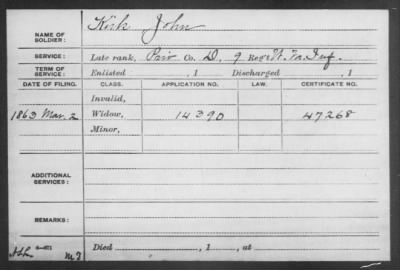 NAME OF SOLDIER: Kirk John
SERVICE: Late rank, Priv Co. D, 9 Reg't W. Va. Inf.
TERM OF SERVICE: Enlisted , 1 Discharged , 1
DATE OF FILING. CLASS. APPLICATION NO. LAW. CERTIFICATE NO.
Invalid,
1863 Mar. 2 Widow, 14390 47268
Minor,
ADDITIONAL SERVICES:
REMARKS:
Died , 1 , at